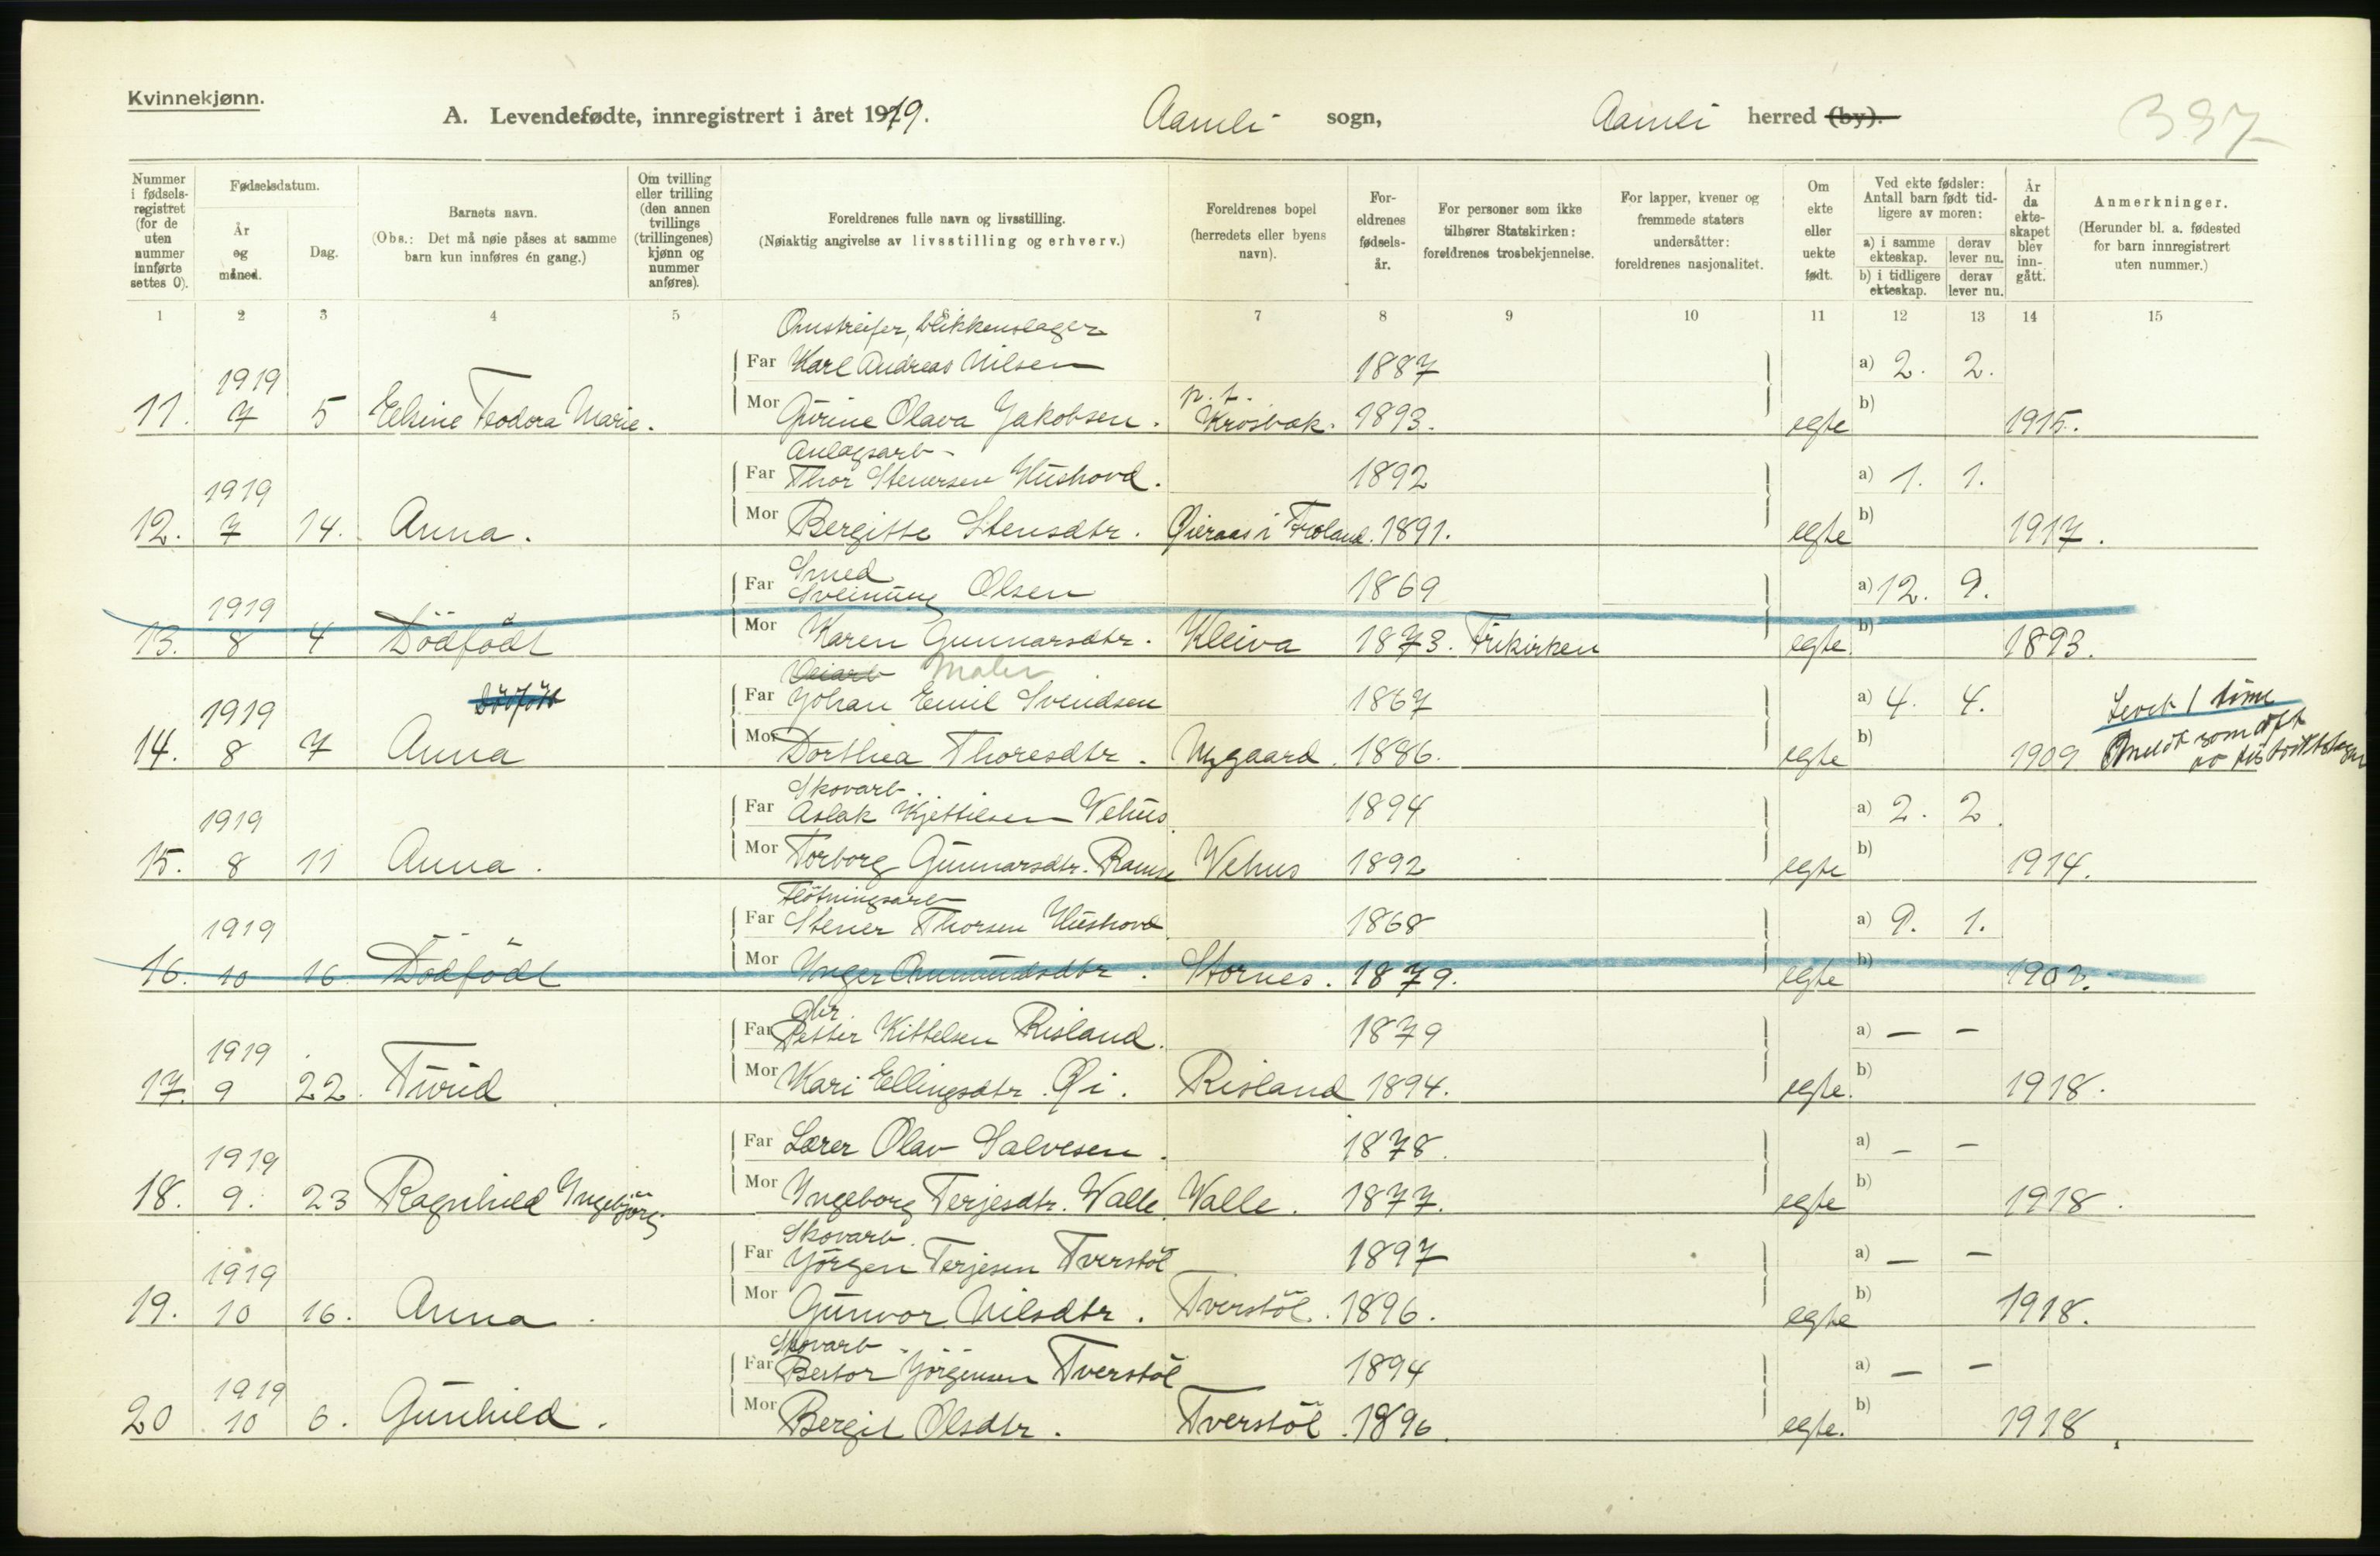 Kvinnekjønn.
A. Levendefødte, innregistrert i året 1919. Aamli sogn, Aamli herred (by). 397
Nummer i fødsels-registret (for de uten nummer innførte settes 0).
Fødselsdatum.
År og måned.
Dag.
Barnets navn.
(Obs.: Det må nøie påses at samme barn kun innføres én gang.)
Om tvilling eller trilling (den annen tvillings (trillingenes) kjønn og nummer anføres).
Foreldrenes fulle navn og livsstilling.
(Nøiaktig angivelse av livsstilling og erhverv.)
Foreldrenes bopel (herredets eller byens navn).
For-eldrenes fødsels-år.
For personer som ikke tilhører Statskirken: foreldrenes trosbekjennelse.
For lapper, kvener og fremmede staters undersåtter: foreldrenes nasjonalitet.
Om ekte eller uekte født.
Ved ekte fødsler: Antall barn født tid-ligere av moren:
a) i samme ekteskap.
derav lever nu.
b) i tidligere ekteskap.
derav lever nu.
År da ekte-skapet blev inn-gått.
Anmerkninger.
(Herunder bl. a. fødested for barn innregistrert uten nummer.)
1 2 3 4 5 7 8 9 10 11 12 13 14 15
Omstreifer, blikkenslager
Far Karl Andreas Nilsen 1887 a) 2. 2.
11. 1919 7 5 Elsine Teodora Marie. Mor Gurine Olava Jakobsen. p.t. Krosbak. 1893. egte b) 1915.
Anlagsarb
Far Thor Stenersen Hushovd. 1892 a) 1. 1.
12. 1919 7 14. Anna. Mor Bergitte Stensdtr. Øieraas i Froland. 1891. egte b) 1917.
Smed
Far Sveinung Olsen 1869 a) 12. 9.
13. 1919 8 4 Dödfödt Mor Karen Gunnarsdtr. Kleiva 1873. Frikirken egte b) 1893.
Veiarb Maler
Dödfödt
Far Johan Emil Svendsen 1867 a) 4. 4.
Levet 1 time
14. 1919 8 7 Anna Mor Dorthea Thoresdtr. Nygaard. 1886. egte b) 1909 som
Skovarb.
Far Aslak Kjettilsen Vehus 1894 a) 2. 2.
15. 1919 8 11 Anna. Mor Torborg Gunnarsdtr. Ramse Vehus 1892 egte b) 1914.
Flötningsarb
Far Stener Thorsen Hushovd 1868 a) 9. 1.
16. 1919 10 16 Dödfödt Mor Inger Aanundsdtr. Stornes. 1879. egte b) 1902.
Gbr.
Far Petter Kittelsen Risland. 1879 a) — —
17. 1919 9 22. Turid Mor Kari Ellingsdtr. Øi. Risland 1894. egte. b) 1918.
Far Lærer Olav Salvesen. 1878. a) — —
18. 1919 9. 23 Ragnhild Ingebjörg Mor Ingeborg Terjesdtr. Walle Walle. 1877. egte b) 1918.
Skovarb.
Far Jörgen Terjesen Tverstöl 1897 a) — —
19. 1919 10 16. Anna. Mor Gunvor Nilsdtr. Tverstöl. 1896. egte b) 1918.
Skovarb
Far Bertor Jörgensen Tverstöl 1894 a) — —
20 1919 10 6. Gunhild. Mor Bergit Olsdtr. Tverstöl. 1896. egte. b) 1918.